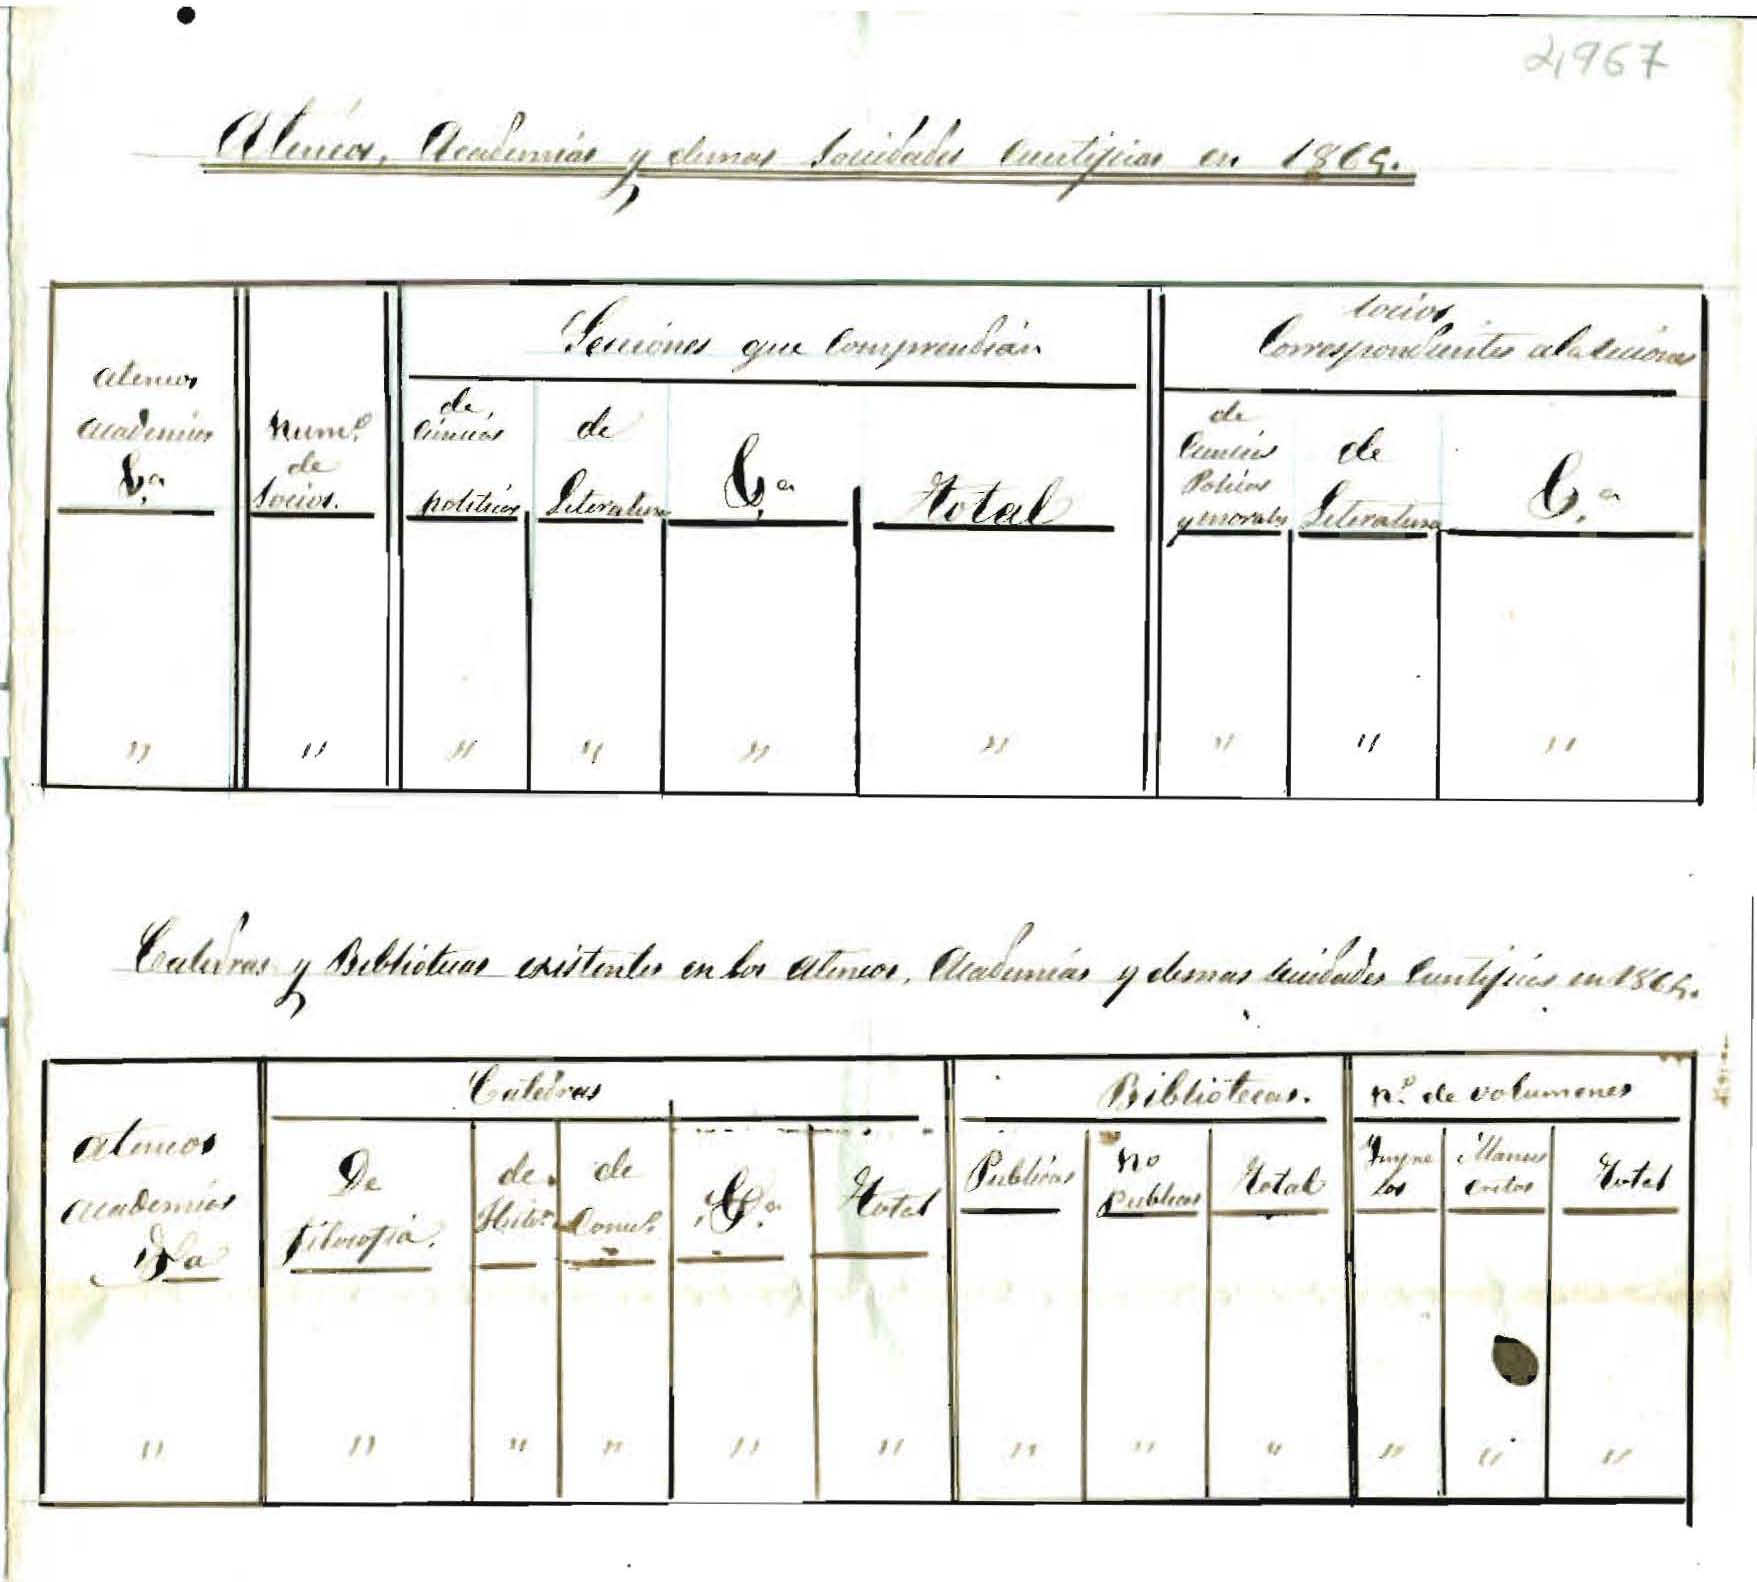 2,967
Ateneos, Academias y demas Sociedades Cientificas en 1865.
Ateneos
Academias
&.a
Num.o
de
Socios.
Secciones que Comprendian
de
Ciencias
politicas
de
Literatura
&.a
Total
Socios
Correspondientes a la Secciones
de
Ciencias
Politicas
y morales
de
Literatura
&.a
" " " " " " " " "
Catedras y Bibliotecas existentes en los Ateneos, Academias y demas Sociedades Cientificas en 1865.
Ateneos
Academias
&a
Catedras
De
filosofia.
de
Hist.a
de
Comer.o
&.a
Total
Bibliotecas.
Publicas
No
publicas
Total
N.o de volumenes
Impre
sos
Manus
critos
Total
" " " " " " " " " " " "